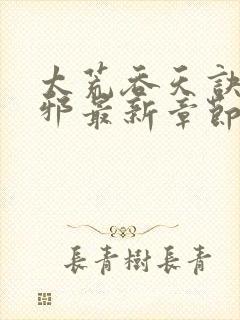 大荒吞天訣
邪最新章節
長青樹長青